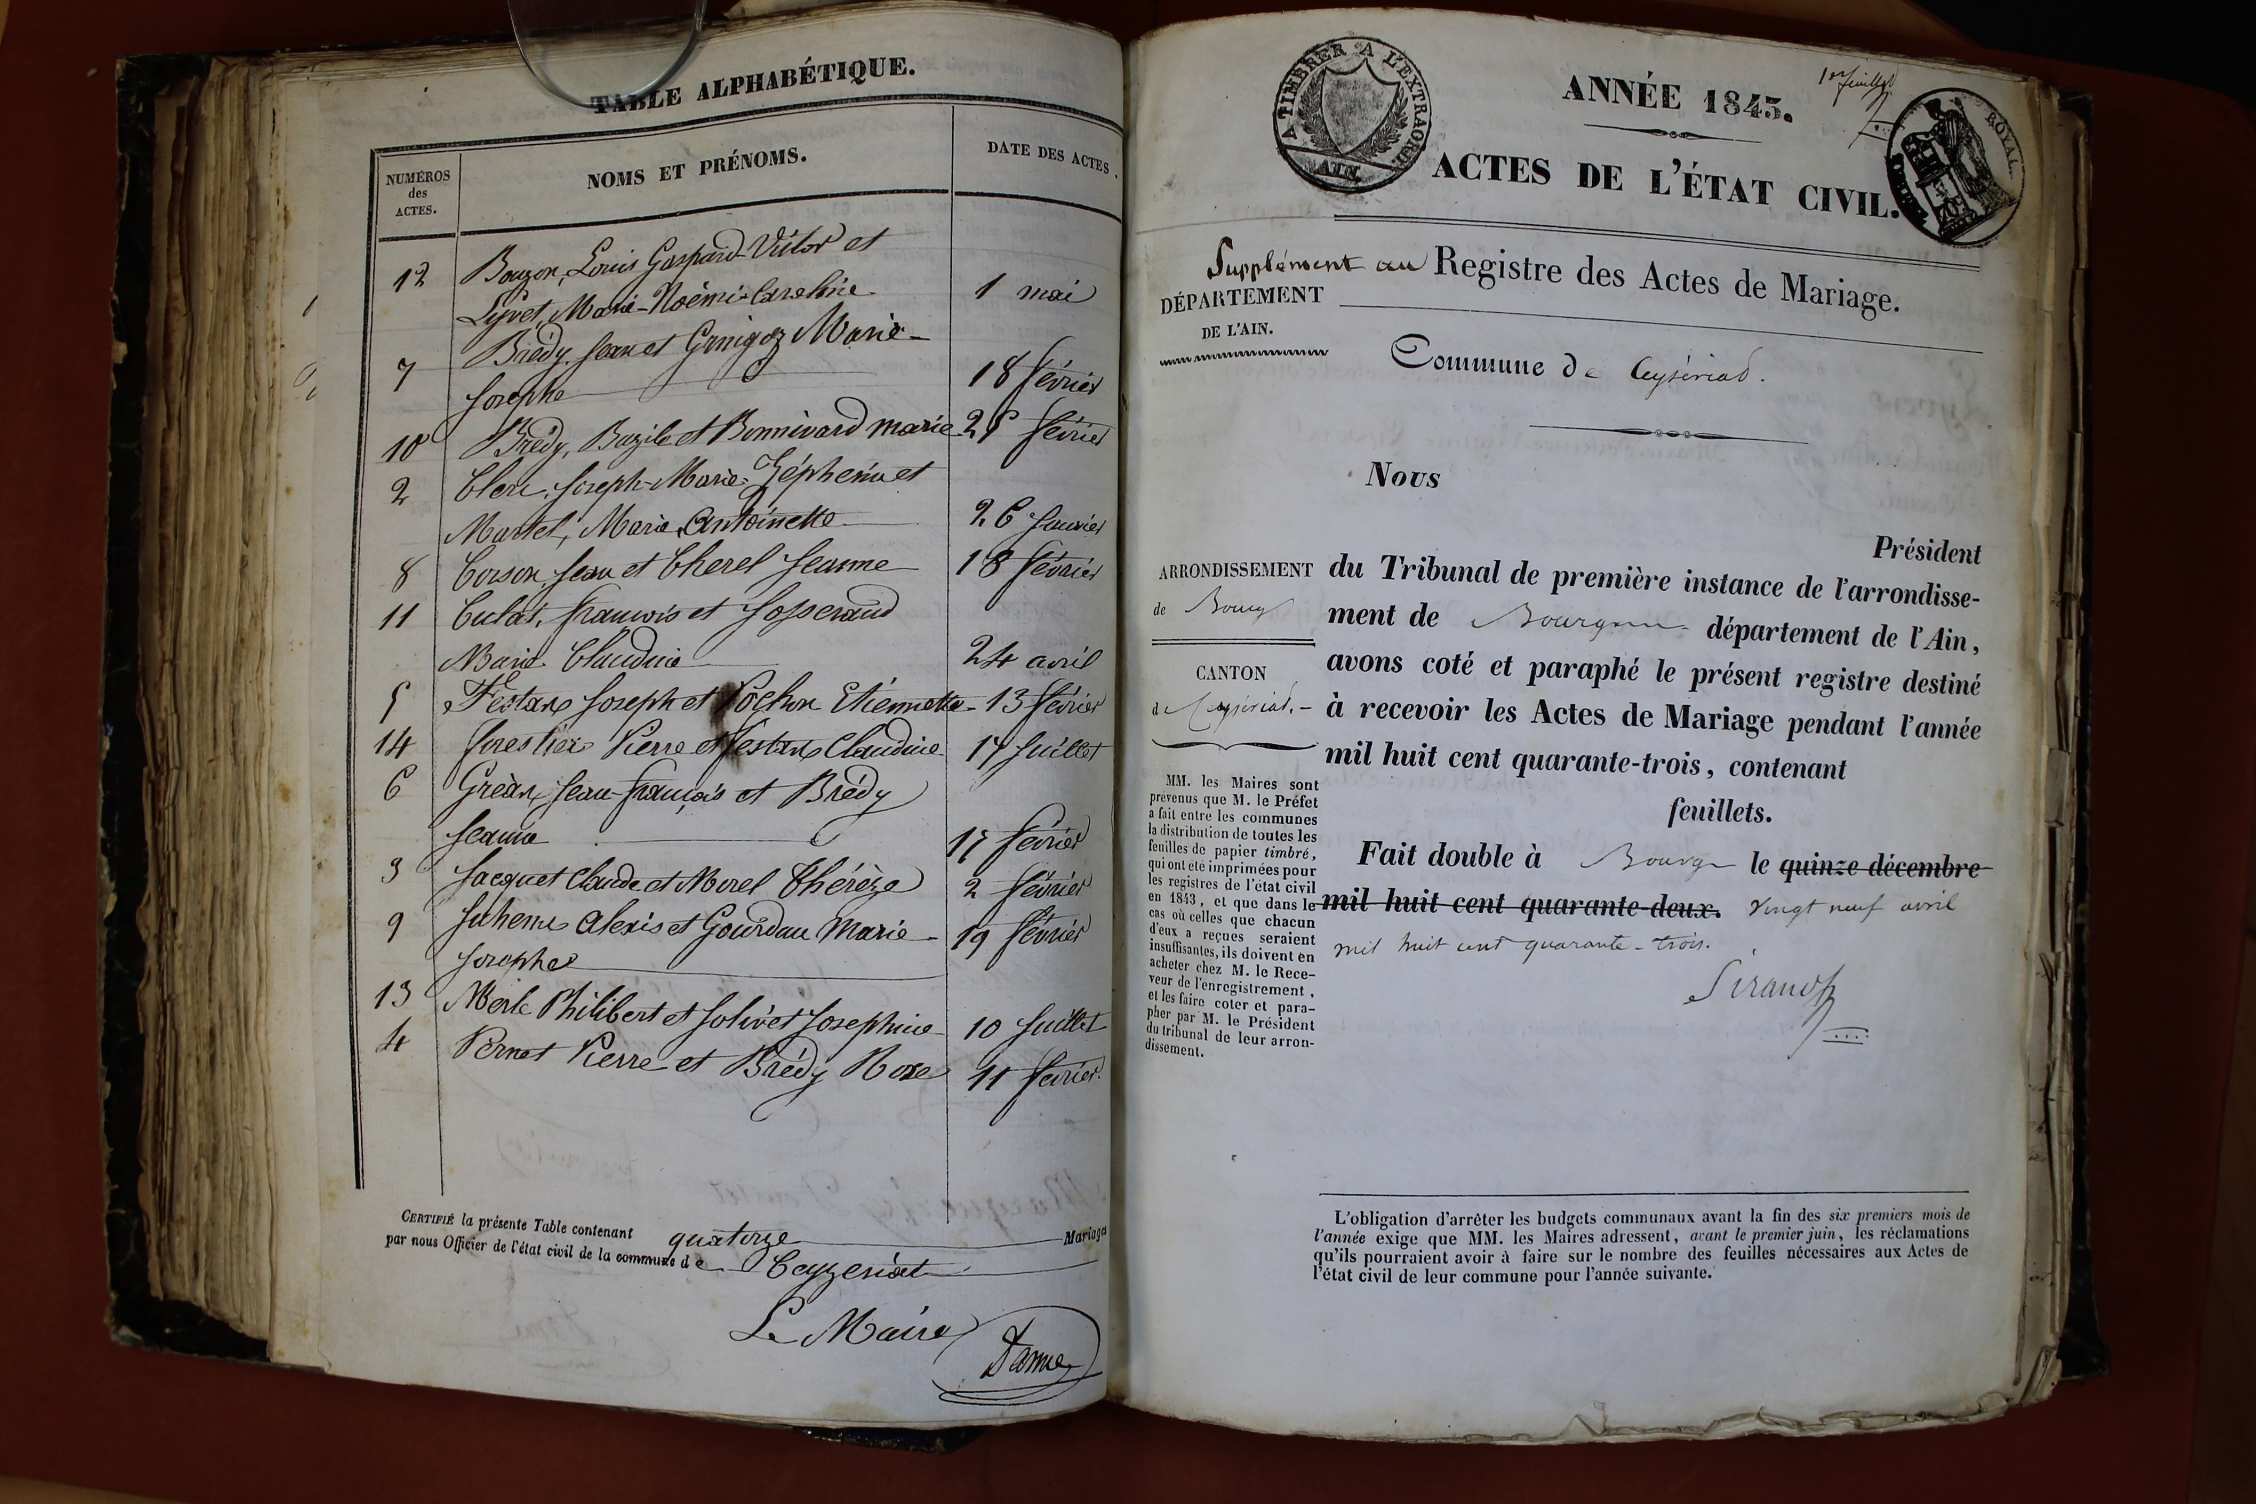 TABLE ALPHABÉTIQUE.
NUMÉROS
des
ACTES.
NOMS ET PRÉNOMS.
DATE DES ACTES.
12 Bouzon, Louis Gaspard Victor et
Lyvet, Marie-Noémi-Caroline 1 mai
7 Brédy Jean et Marie-
Josephe 18 février
10 Brédy, Bazile et Bonnivard marie février
2 Clerc, Joseph-Marie- et
Martel, Marie Antoinette 26 Janvier
8 Corson Jean et Cherel Jeanne 18 février
11 Culat, françois et Josserand
Marie Claudine 24 avril
5 Festan Joseph et Pochon Etiennette 13 février
14 forestier Pierre et festan Claudine 17 Juillet
6 Gréan Jean françois et Brédy
Jeanne 17 février
3 Jacquet Claude et Morel Thérèze 2 février
9 Juhem Alexis et Gourdan Marie-
Josephe 19 février
13 Merle Philibert et Jolivet Josephine 10 Juillet
4 Pernet Pierre et Brédy Rose 11 février.
CERTIFIÉ la présente Table contenant quatorze Mariages
par nous Officier de l'état civil de la commune de Ceyzeriat
Le Maire
Darme
1er feuillet
A TIMBRER A L'EXTRAORD.
AIN
TIMBRE ROYAL
ANNÉE 1843.
ACTES DE L'ÉTAT CIVIL.
Supplément au Registre des Actes de Mariage.
DÉPARTEMENT
DE L'AIN.
Commune de Ceyzériat.
Nous
Président
ARRONDISSEMENT
de Bourg
CANTON
de Ceyzériat.
MM. les Maires sont
prévenus que M. le Préfet
a fait entre les communes
la distribution de toutes les
feuilles de papier timbré,
qui ont été imprimées pour
les registres de l'état civil
en 1843, et que dans le
cas où celles que chacun
d'eux a reçues seraient
insuffisantes, ils doivent en
acheter chez M. le Rece-
veur de l'enregistrement,
et les faire coter et para-
pher par M. le Président
du tribunal de leur arron-
dissement.
du Tribunal de première instance de l'arrondisse-
ment de Bourg département de l'Ain,
avons coté et paraphé le présent registre destiné
à recevoir les Actes de Mariage pendant l'année
mil huit cent quarante-trois, contenant
feuillets.
Fait double à Bourg le quinze décembre
mil huit cent quarante-deux. vingt neuf avril
mil huit cent quarante-trois.
Sirand
L'obligation d'arrêter les budgets communaux avant la fin des six premiers mois de
l'année exige que MM. les Maires adressent, avant le premier juin, les réclamations
qu'ils pourraient avoir à faire sur le nombre des feuilles nécessaires aux Actes de
l'état civil de leur commune pour l'année suivante.